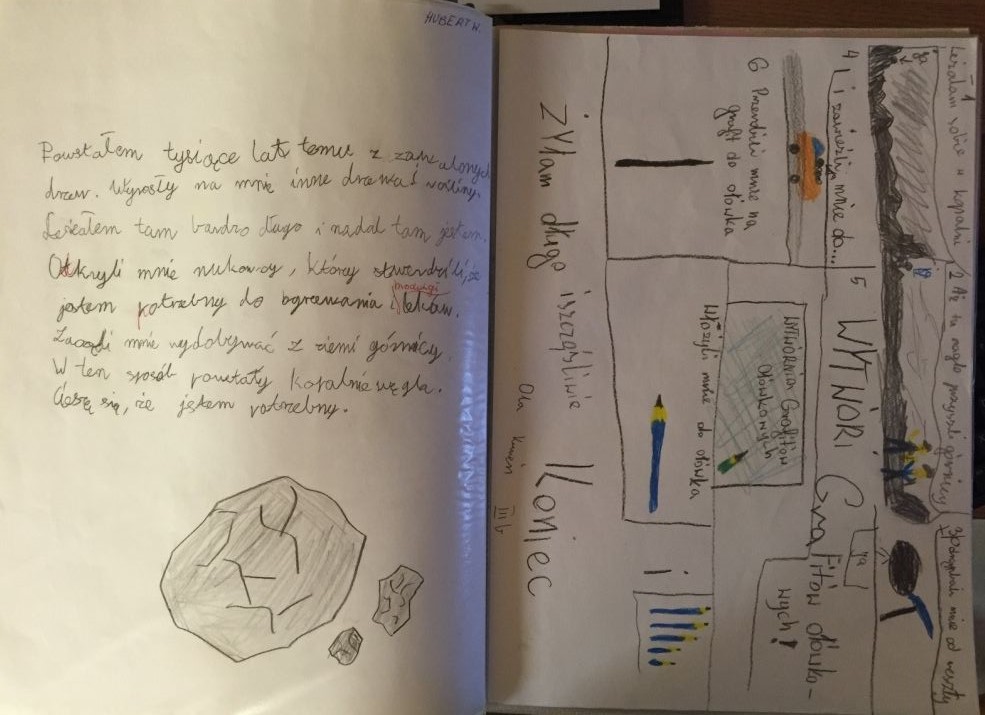 HUBERT W.
Powstałem tysiące lat temu z zapalonych
drzew. Wyrosły na mnie inne drzewa i rośliny.
Leżałem tam bardzo długo i nadal tam jestem.
Odkryli mnie nukowcy, którzy stwierdzili, że
jestem potrzebny do ogrzewania i produkcji leków.
Zaczęli mnie wydobywać z ziemi górnicy.
W ten sposób powstały kopalnie węgla.
Cieszę się, że jestem potrzebny.
1
Leżałam sobie w kopalni
ja
2 Aż tu nagle przyszli górnicy
3 Odrąbali mnie od reszty
ja
4 I zawieźli mnie do...
5 WYTWÓRNI GrafitóW ołówko-
wych!
WYTWÓRNIA Grafitów
Ołówkowych
6 Przerobili mnie na
grafit do ołówka
Włożyli mnie do ołówka
i
Żyłam długo i szczęśliwie Koniec
Ola
III b